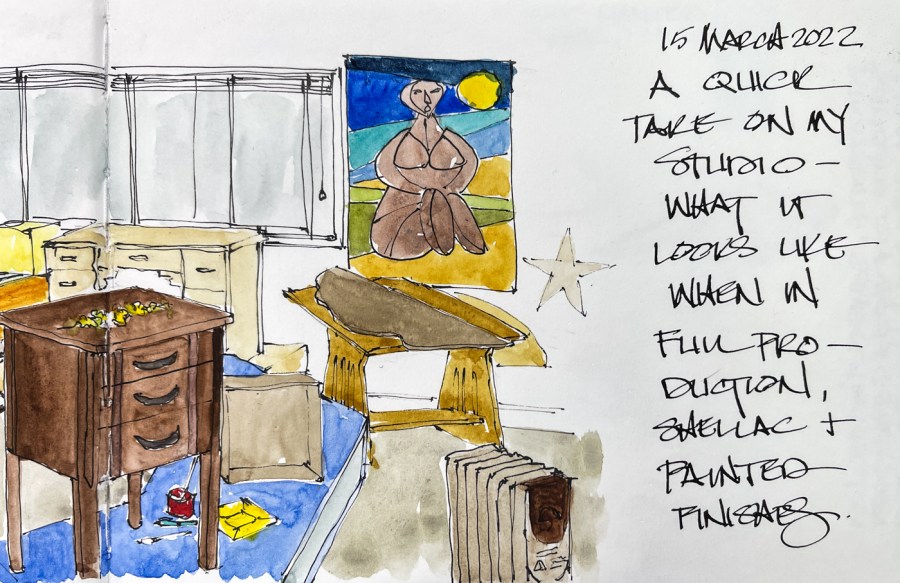 15 MARCH 2022
A QUICK
TAKE ON MY
STUDIO —
WHAT IT
LOOKS LIKE
WHEN IN
FULL PRO —
DUCTION,
SHELLAC +
PAINTED
FINISHES.